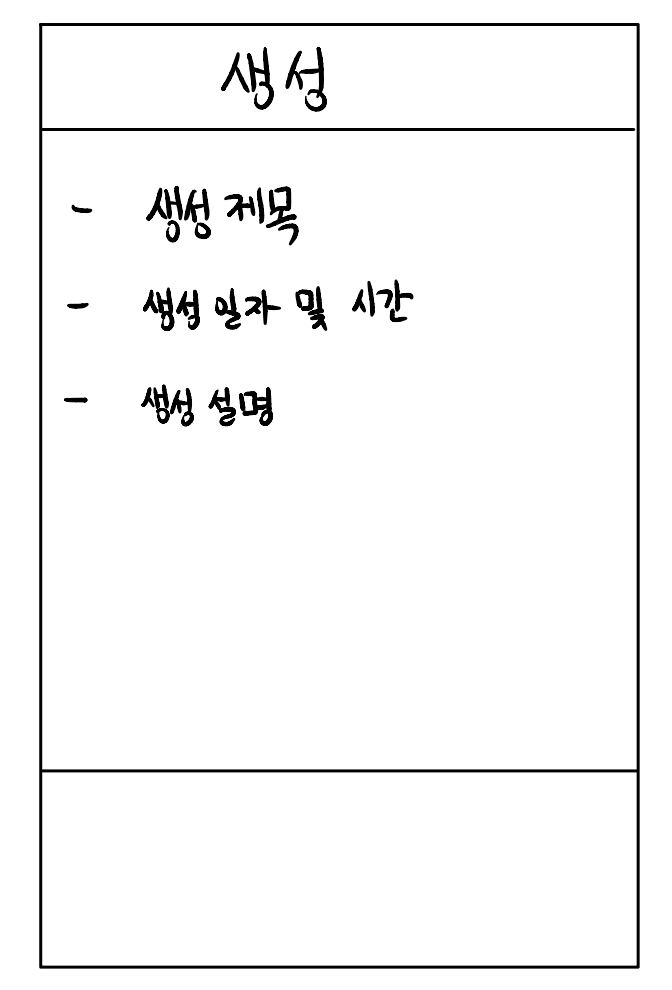 생성
- 생성 제목
- 생성 일자 및 시간
- 생성 설명